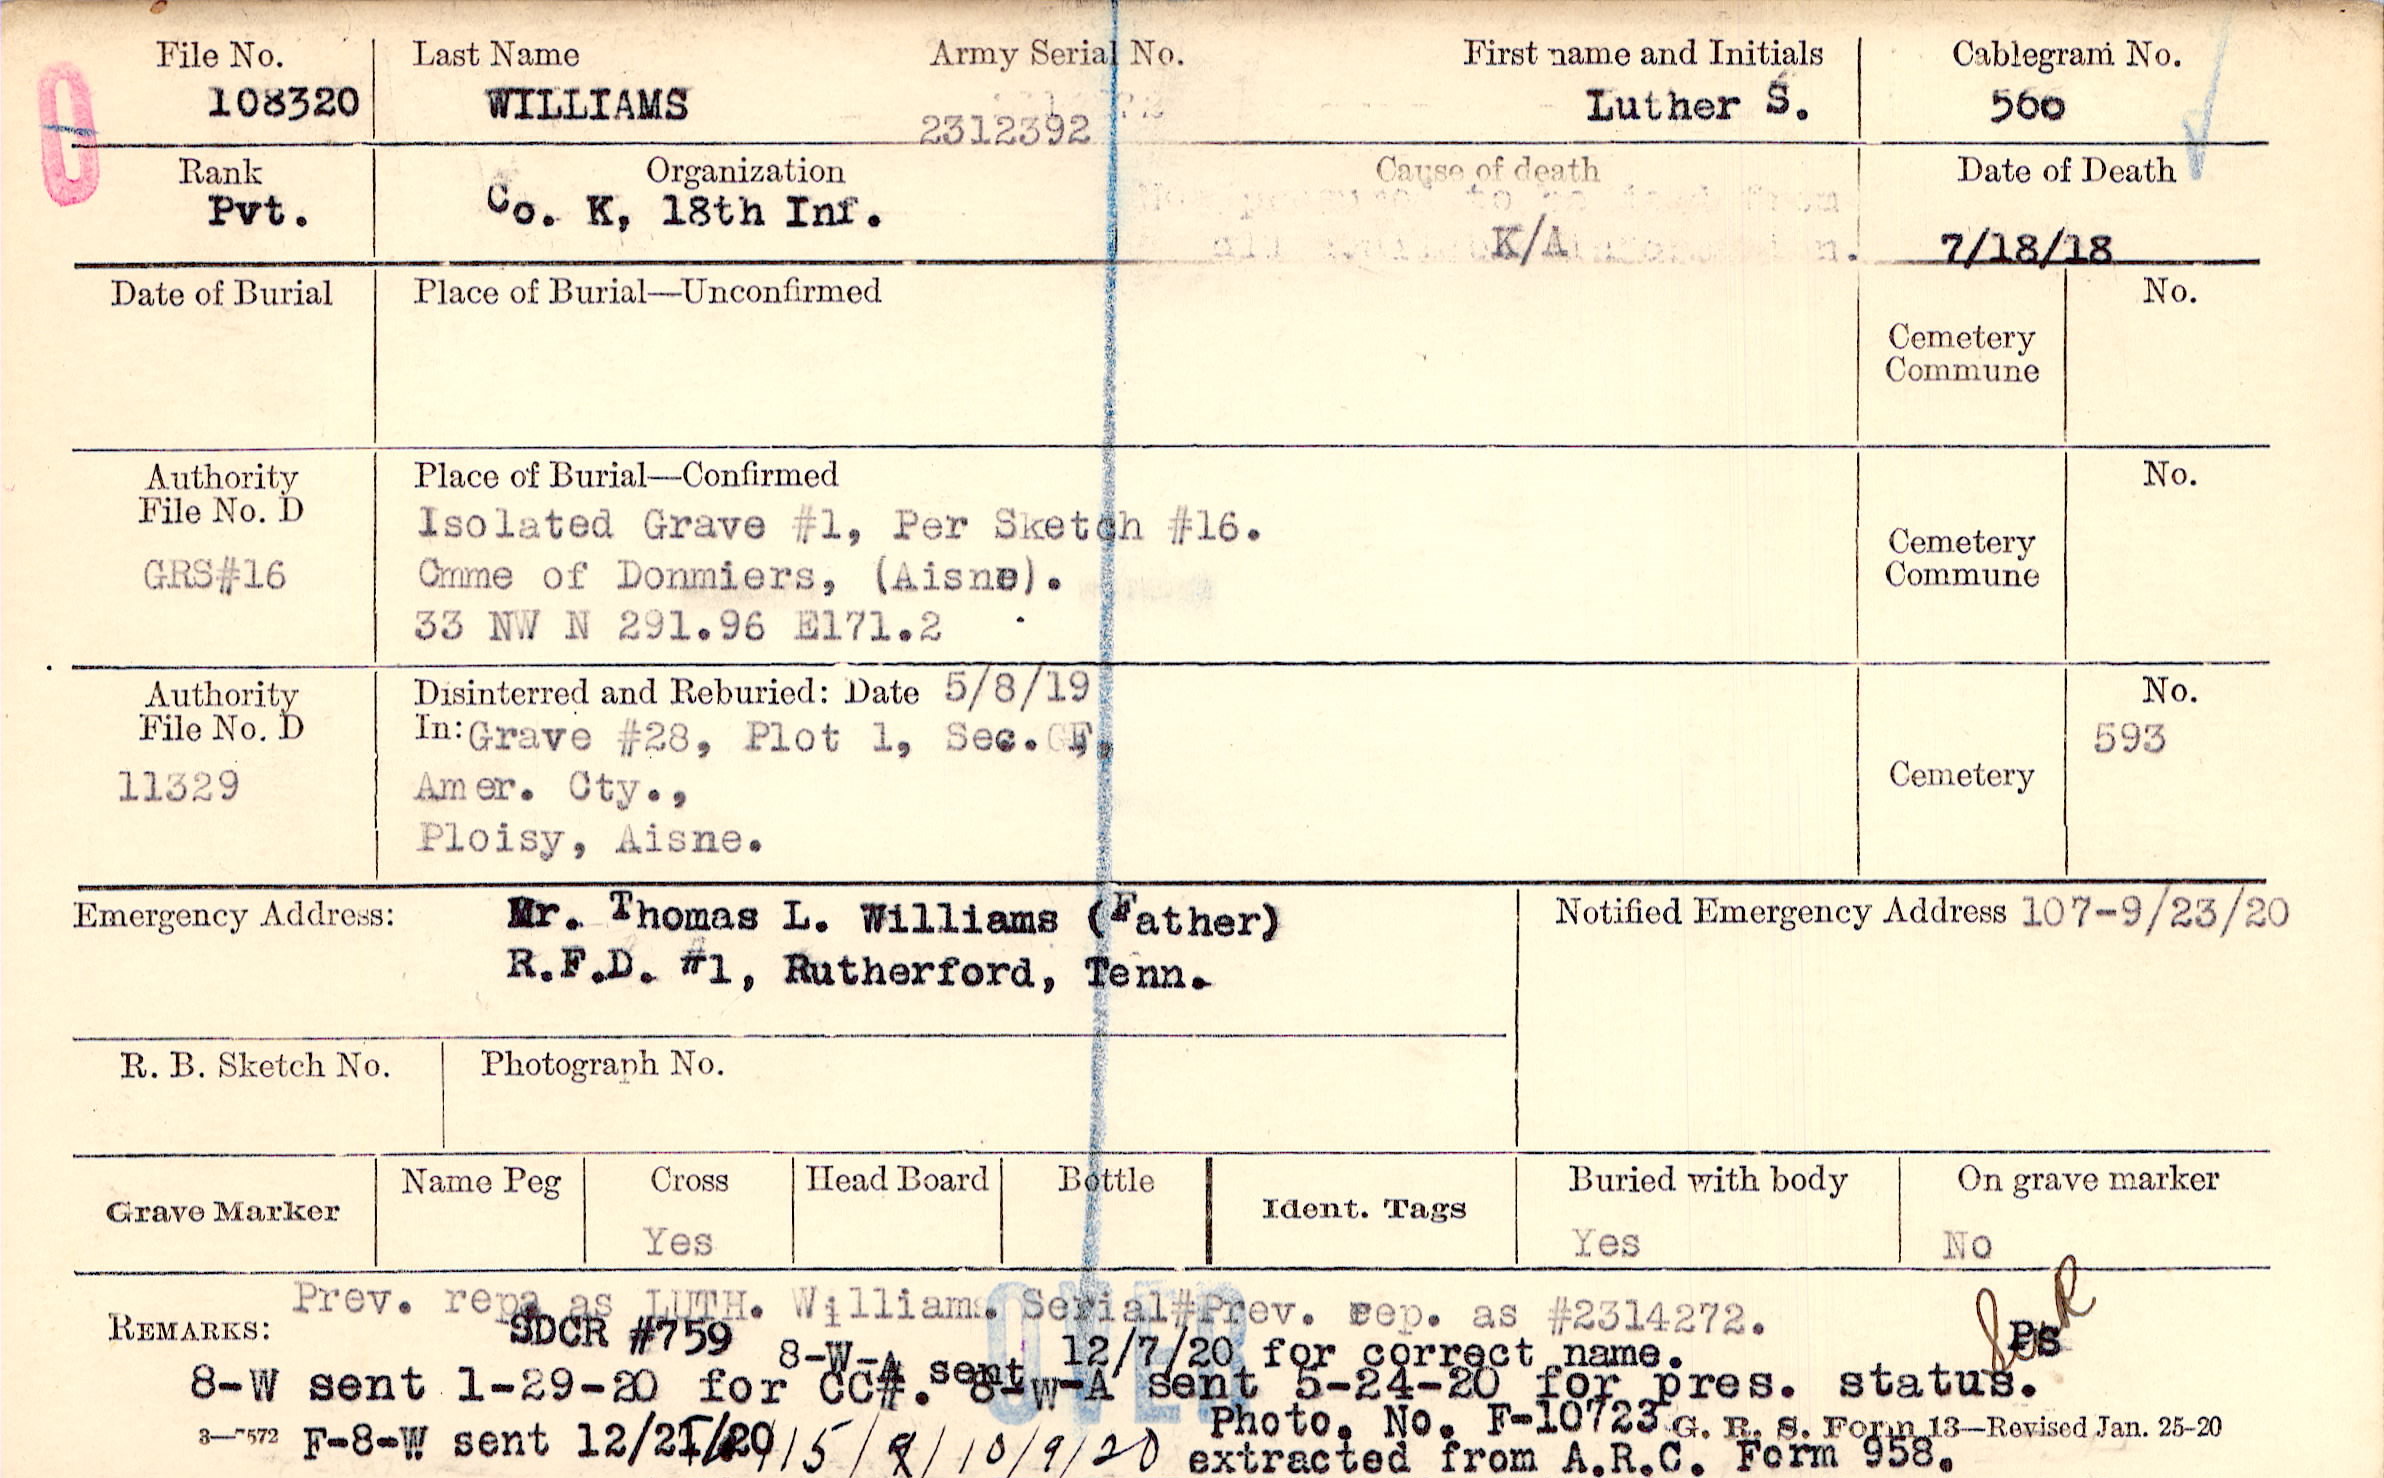 File No. Last Name Army Serial No. First name and Initials Cablegram No.
108320 WILLIAMS 2312392 Luther S. 560
Rank Organization Cause of death Date of Death
Pvt. Co. K, 18th Inf. K/A 7/18/18
Date of Burial Place of Burial—Unconfirmed No.
Cemetery
Commune
Authority Place of Burial—Confirmed No.
File No. D Isolated Grave #1, Per Sketch #16.
Cemetery
GRS#16 Cmme of Donmiers, (Aisne). Commune
33 NW N 291.96 E171.2
Authority Disinterred and Reburied: Date 5/8/19 No.
File No. D In: Grave #28, Plot 1, Sec. F, 593
11329 Amer. Cty., Cemetery
Ploisy, Aisne.
Emergency Address: Mr. Thomas L. Williams (Father) Notified Emergency Address 107-9/23/20
R.F.D. #1, Rutherford, Tenn.
R. B. Sketch No. Photograph No.
Grave Marker Name Peg Cross Head Board Bottle Ident. Tags Buried with body On grave marker
Yes Yes No
Prev. rep. as LUTH. Williams. Serial#Prev. rep. as #2314272.
REMARKS: SDCR #759 Ps
8-W-A sent 12/7/20 for correct name.
8-W sent 1-29-20 for CC#. 8-W-A sent 5-24-20 for pres. status.
OVER
Photo. No. F-10723 G. R. S. Form 13—Revised Jan. 25-20
3—7572 F-8-W sent 10/9/20 extracted from A.R.C. Form 958.